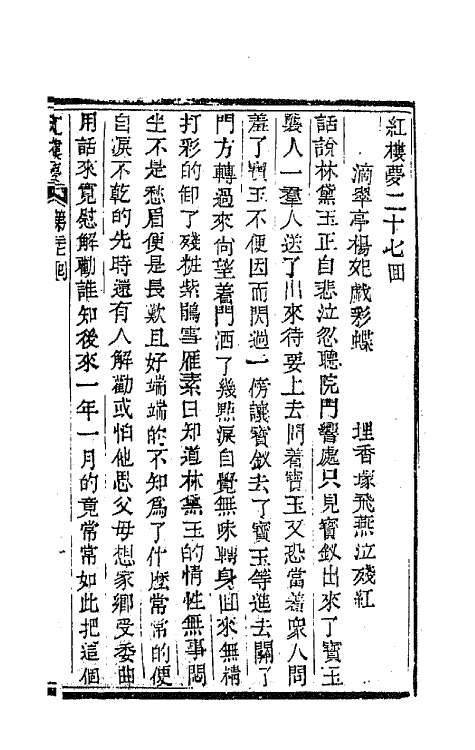 紅樓夢二十七回
滴翠亭楊妃戲彩蝶 埋香塚飛燕泣殘紅
話說林黛玉正自悲泣忽聽院門響處只見寶釵出來了寶玉
襲人一羣人送了出來待要上去問着寶玉又恐當着衆人問
羞了寶玉不便因而閃過一傍讓寶釵去了寶玉等進去關了
門方轉過來尙望着門洒了幾點淚自覺無味轉身囬來無精
打彩的卸了殘粧紫鵑雪雁素日知道林黛玉的情性無事悶
坐不是愁眉便是長歎且好端端的不知爲了什麽常常的便
自淚不乾的先時還有人解勸或怕他思父母想家鄉受委曲
用話來寛慰解勸誰知後來一年一月的竟常常如此把這個
紅樓夢 第二十七囬